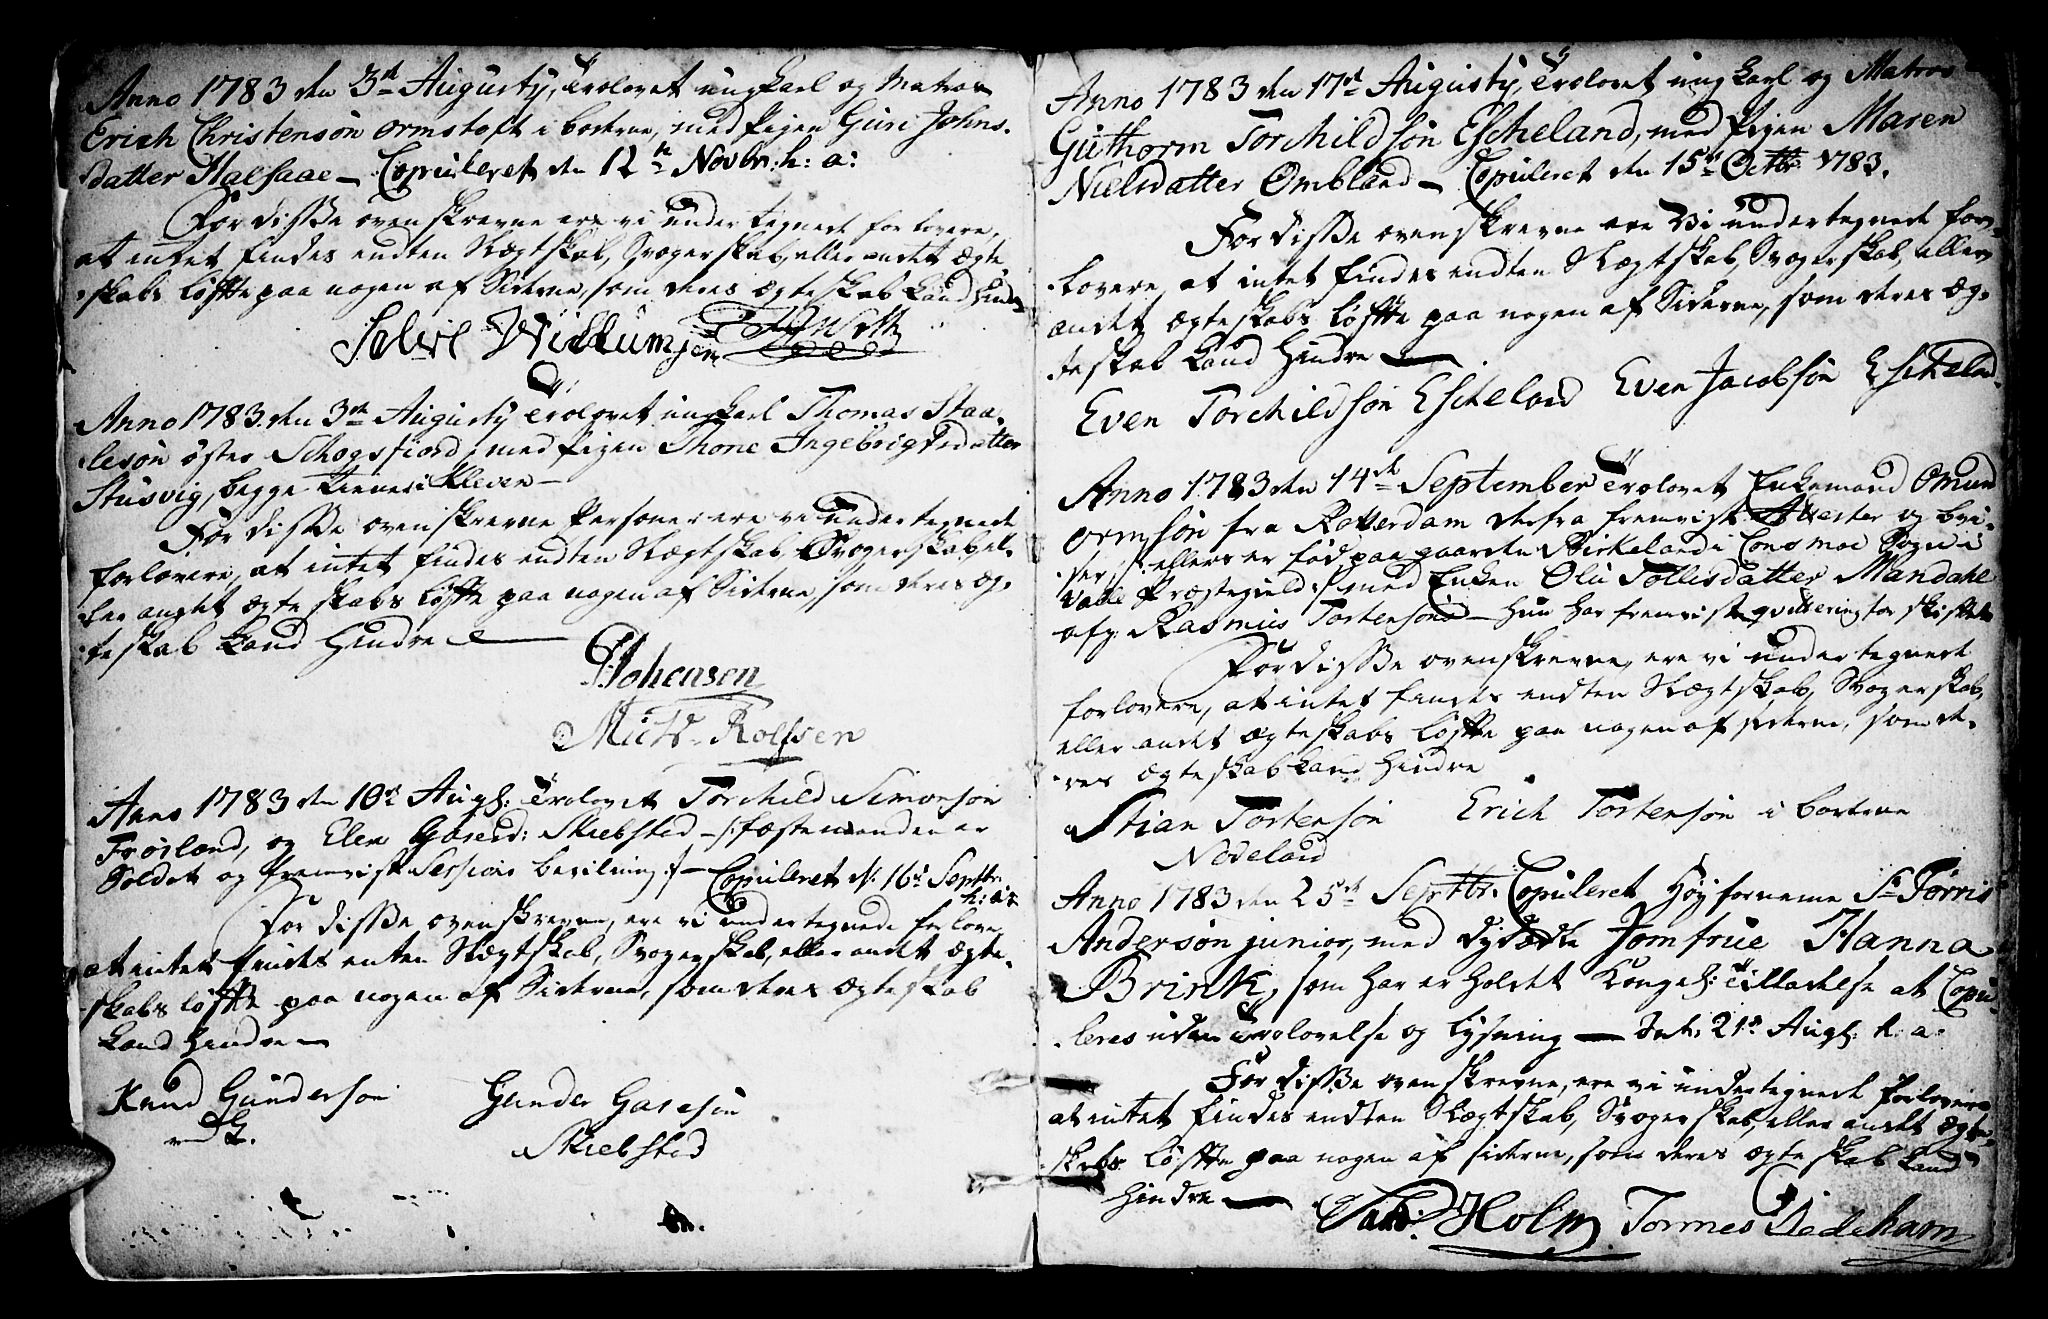 Anno 1783 den 3die Augusty, Trolovet ungkarl og Matros
Erich Christensøn Ormstoft i boderne, med Pigen Guri Johns-
datter Halsaae – Copuleret den 12te Novbr. h: a:
For disse ovenskrevne ere vi undertegnede forlovere,
at intet findes endten Slægtskab, Svogerskab, eller andet Ægte-
skabs løfte paa nogen af Siderne, som deres Ægteskab kand hindre
Willumsen
Anno 1783 den 3die Augusty Trolovet ungkarl Thomas Staa-
lesøn øster Schogsfiord, med Pigen Thone Ingebrigtsdatter
Stusvig, begge tiener i Kleven –
For disse ovenskrevne Personer ere vi undertegnede
forlovere, at intet findes endten Slægtskab Svogerskab, el-
ler andet Ægteskabs løfte paa nogen af Siderne, som deres Æg-
teskab kand Hindre
Johensen
Rolfsen
Anno 1783 den 10de Augs: Trolovet Torchild Simonsøn
Frøisland, og Elen Gasesd: Skiebsted –/: fæstemanden er
Soldat og fremvist Sessions bevilning :/ – Copuleret d: 16de Septbr.
h: a:
For disse ovenskrevne, ere vi undertegnede forlovere
at intet findes enten Slægtskab, Svogerskab, eller andet Ægte-
skabs løfte paa nogen af Siderne, som deres Ægteskab
kand hindre –
Knud Gundersøn
Gunder Gasesøn
Skiebsted
Anno 1783 den 17de Augusty, Trolovet ungkarl og Matros
Guthorm Torchildsøn Escheland, med Pigen Maren
Nielsdatter Ombland – Copuleret den 15de Octbr 1783.
For disse ovenskrevne ere Vi undertegnede for-
lovere, at intet findes endten Slægtskab, Svogerskab, eller
andet Ægteskabs løfte paa nogen af Siderne, som deres Æg-
teskab kand Hindre
Even Torchildsøn Escheland Even Jacobsøn Escheland
Anno 1783 den 14de September Trolovet Enkemand Omund
Ormsøn fra Rotterdam derfra fremvist Attester og bevi-
ser, /: ellers er fød paa gaarden Birkeland i Consmoe Sogn i
Valle Præstegield :/ med Enken Olu Tollisdatter Mandahl
afg: Rasmus Tortensøns – Hun har fremvist qvittering for skiftet
For disse ovenskrevne, ere vi undertegnede
forlovere, at intet findes endten Slægtskab, Svogerskab,
eller andet Ægteskabs løfte paa nogen af siderne, som de-
res Ægteskab kand Hindre
Stian Tortensøn Erich Tortensøn i boderne
Nodeland
Anno 1783 den 25de Septbr: Copuleret Høyfornemme Sr Tørris
Andersøn junior, med Dydædle Jomfrue Hanna
Brink, som har erholdet Kongel: Tilladelse at Copu-
leres uden Trolovelse og Lysning – Dat: 21de Augs: h: a:
For disse ovenskrevne, ere vi undertegnede forlovere
at intet findes endten Slægtskab, Svogerskab, eller andet Ægte-
skabs løfte paa nogen af siderne, som deres Ægteskab kand
Hindre –
Holm Tormes Dedeham